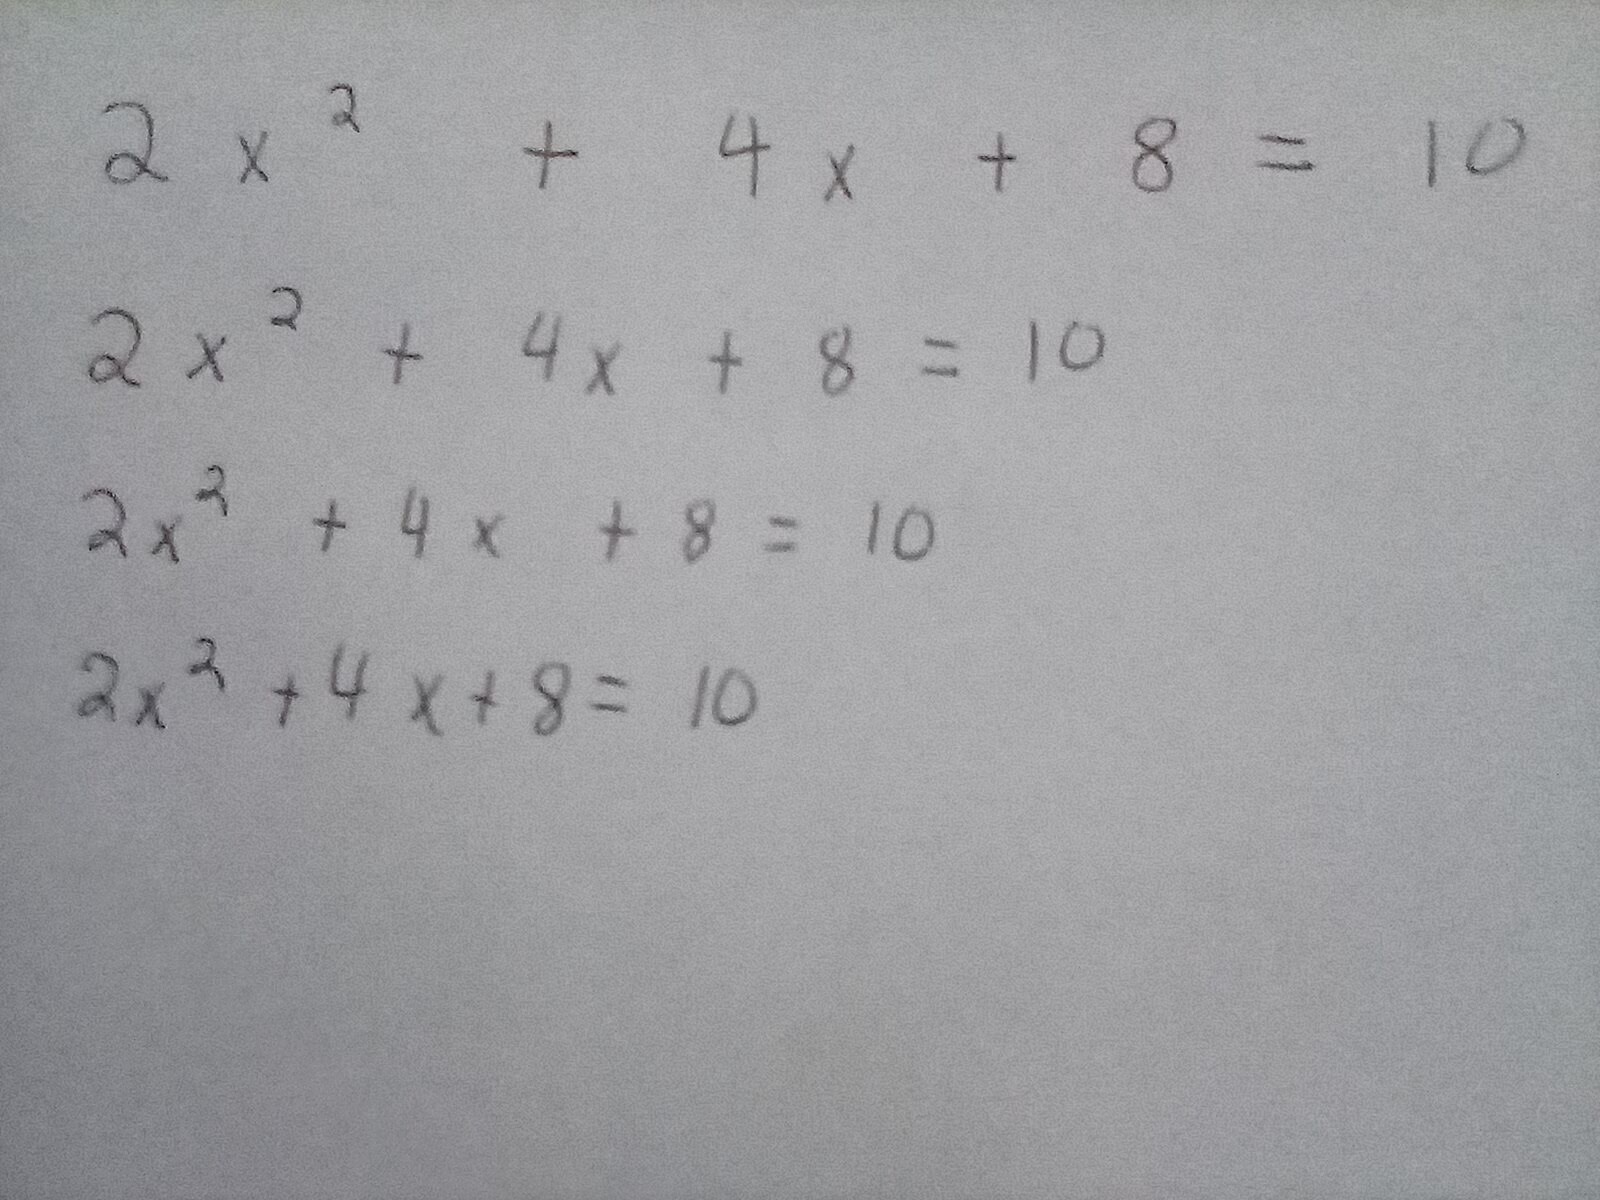 2x² + 4x + 8 = 10
2x² + 4x + 8 = 10
2x² + 4x + 8 = 10
2x² + 4x + 8 = 10